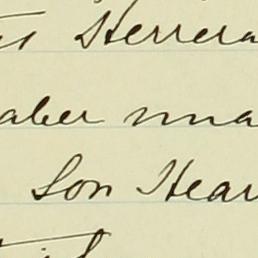 Herrera
aber una
Son Hear